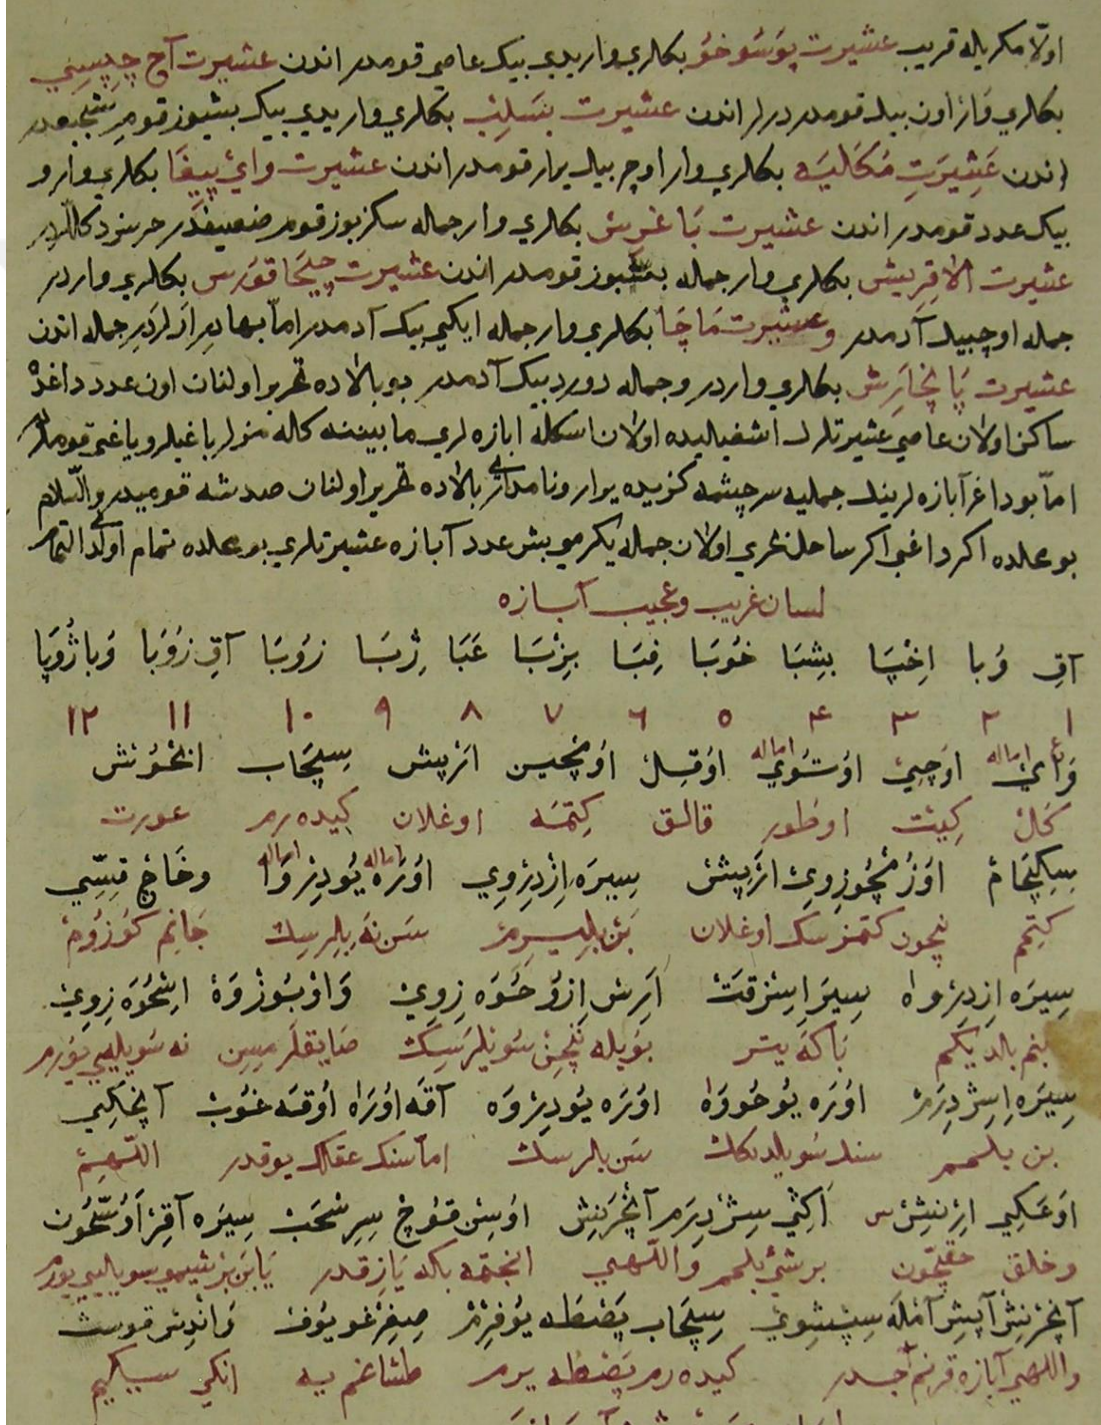 اولا مكريله قريب عشيرت پوسوخو بكلري واريدي بيك عاصي قومدر اندن عشيرت آچ چپسيي
بكلري وار اون بيك قومدر درلر اندن عشيرت بسلب بكلري واريدي بيك بشيوز قوم شجيعدر
اندن عشيرت مكاليه بكلري وار اوچ بيك يرار قومدر اندن عشيرت واي پيغا بكلري وار و
بيك عدد قومدر اندن عشيرت باغرش بكلري وار جمله سكز يوز قوم ضعيفدر حرسزدكللردر
عشيرت الاقريش بكلري وار جمله بشيوز قومدر اندن عشيرت چيجاقورس بكلري واردر
جمله اوچبيك آدمدر و عشيرت ماچا بكلري وار جمله ايكي بيك آدمدر اما بهادر ارلردر جمله اندن
عشيرت پانخارش بكلري واردر و جمله دورد بيك آدمدر بو بالاده تحرير اولنان اون عدد داغده
ساكن اولان عاصي عشيرتلرك اشغيليده اولان اسكله ابازه لري مابيننه كله مزلر ياغيلر و ياغي قوملر
اما بو داغ آبازه لرينك جمله سرچشمه كزيده يرار ونامدارلري بالاده تحرير اولنان صدشه قوميدر والسلام
بو محلده اكر داغي اكر ساحل بحري اولان جمله يكرمي بش عدد آبازه عشيرتلري بو محلده تمام اولدي
لسان غريب وعجيب آبازه
آق وبا اخپا بشبا خوبا فبا بزبا عبا ژبا زوبا آق زوبا وبا ژوپا
١ ٢ ٣ ٤ ٥ ٦ ٧ ٨ ٩ ١٠ ١١ ١٢
واي اماله اوجئ اوستوي اماله اوقل اومچين ارپش سچاب انخونش
كل كيت اوطور قالق كتمه اوغلان كيده رم عورت
سكچام اوزمچوزوي ارپش سره ازدروي اوره يودروا وخاچ قسي
كتمم نيچون كتمزسك اوغلان بن بليرم سن نه بلرسك جانم كوزوم
سره ازدروا سرا استرقت آرش ازوخوه زوي واو بوزوه اشخوه زوي
بنم بلديكم باكه يتر بويله نيچن سويلرسك صايقلرميسن نه سويليييورم
سره اسژدرم اوره يوخووا اوره يودروه آقه اوره اوقه غوب آنچكي
بن بلمم سنك سويلدكك سن بلرسك اما سنك عقلك يوقدر اللهم
اوعكي ارنش اكثي سژدرم آنخرنش اوسن قوخ سرشحب سره آقر اوشحون
وخلق حقيچون برشي بلمم واللهي انجتمه بكه يازقدر يا بن برشيمي سويلييورم
آنخرنش آپش آمله سپشوي سچاب پضطه يوفرم صغرغو يوف واندر قوست
واللهي آبازه قرنم آجدر كيده رم پضطه يرم طشاغم يه انكي سيكيم